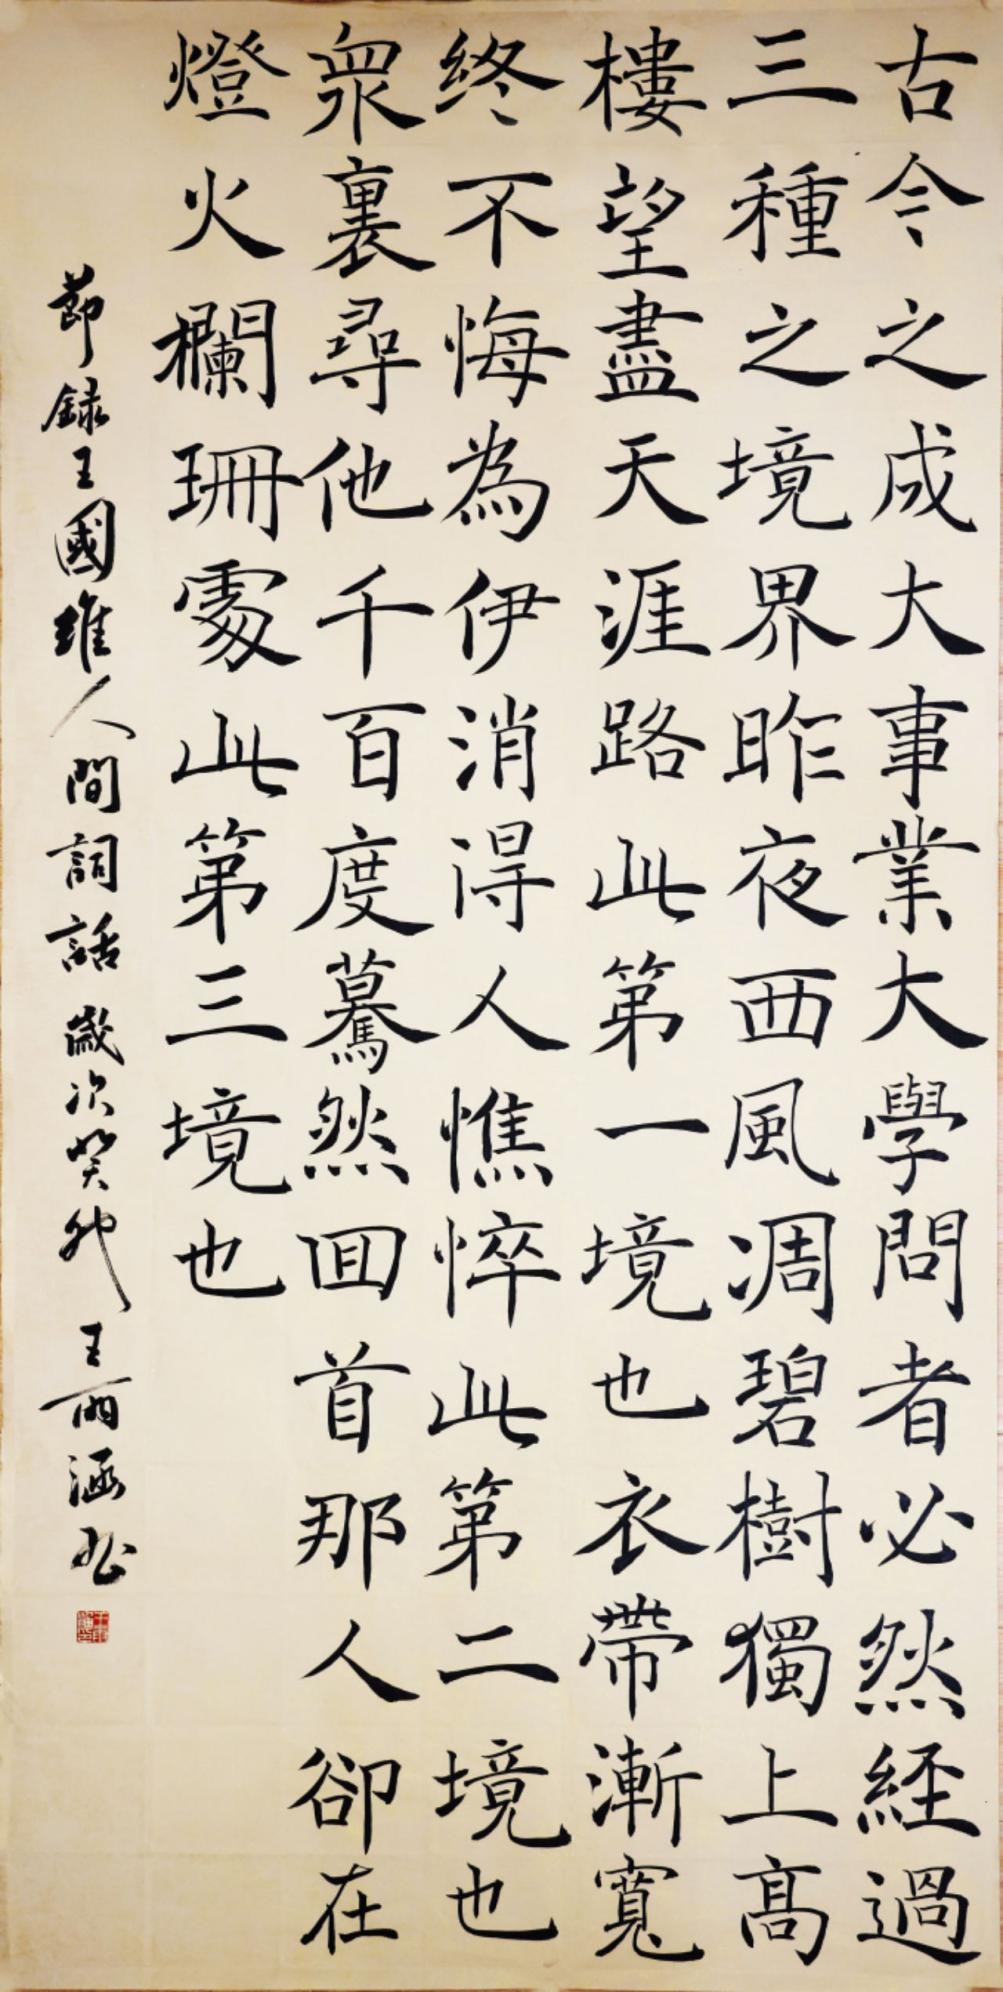 古今之成大事業大學問者必然経過
三種之境界昨夜西風凋碧樹獨上高
樓望盡天涯路此第一境也衣帶漸寬
終不悔為伊消得人憔悴此第二境也
衆裏尋他千百度驀然回首那人卻在
燈火欄珊處此第三境也
節録王國維人間詞話歲次癸卯王雨涵书